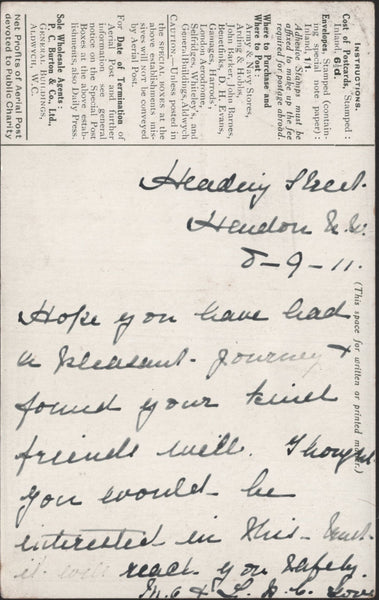 INSTRUCTIONS.
Cost of Postcards, Stamped:
Inland, 6½d.
Envelopes, Stamped (contain-
ing special note paper):
Inland, 1/1.
Adhesive Stamps must be
affixed to make up the fee
required for postage abroad.
Where to Purchase and
Where to Post:
Army & Navy Stores,
Arding & Hobbs,
John Barker, John Barnes,
Benetfinks, D. H. Evans,
Gamages, Harrod's,
London Aerodrome,
Selfridges, Whiteley's, and
General Buildings, Aldwych
CAUTION.—Unless posted in
the SPECIAL BOXES at the
above establishments mis-
sives will not be conveyed
by Aerial Post.
For Date of Termination of
Aerial Post and further
information see general
notice on the Special Post
Boxes at the above estab-
lishments, also daily Press.
Sole Wholesale Agents:
P. Burton & Co., Ltd.,
GENERAL BUILDINGS,
ALDWYCH, W.C.
Net Profits of Aerial Post
devoted to Public Charity
(This space for written or printed matter.)
Heading Street.
Hendon N.W.
8-9-11.
Hope you have had
a pleasant journey &
found your kind
friends well. Thought
you would be
interested in this. Trust
it will reach you safely.
Love